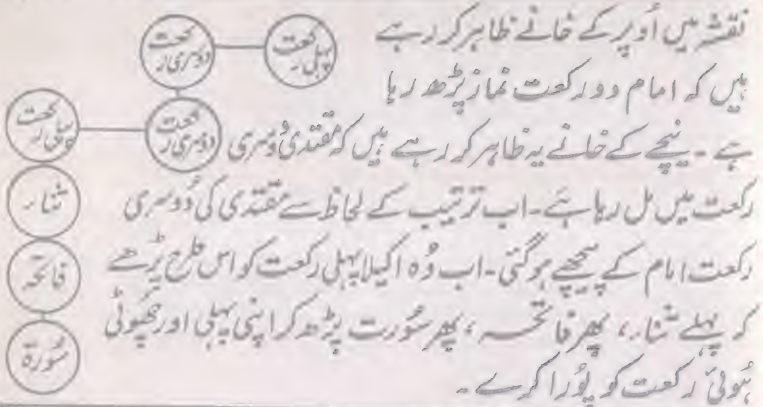 نقشہ میں اُوپر کے خانے ظاہر کر رہے
ہیں کہ امام دو رکعت نماز پڑھ رہا
ہے ۔ نیچے کے خانے یہ ظاہر کر رہے ہیں کہ مقتدی دُوسری
رکعت میں مل رہا ہے۔ اب ترتیب کے لحاظ سے مقتدی کی دُوسری
رکعت امام کے پیچھے ہو گئی ۔ اب وُہ اکیلا پہلی رکعت کو اس طرح پڑھے
کہ پہلے ثناء ، پھر فاتحہ ، پھر سُورت پڑھ کر اپنی پہلی اور چھوٹی
ہُوئی رکعت کو پُورا کرے ۔
پہلی رکعت
دوسری رکعت
دوسری رکعت
پہلی رکعت
ثناء
فاتحہ
سُورۃ